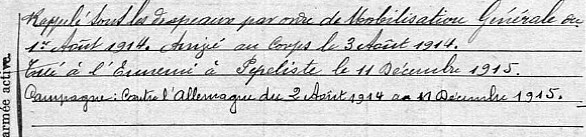 Rappelé sous les drapeaux par ordre de Mobilisation Générale du
1er Août 1914. Arrivé au Corps le 3 Août 1914.
Tué à l'Ennemi à Pepeliste le 11 Décembre 1915.
Campagne: Contre l'Allemagne du 2 Août 1914 au 11 Décembre 1915.
armée active.